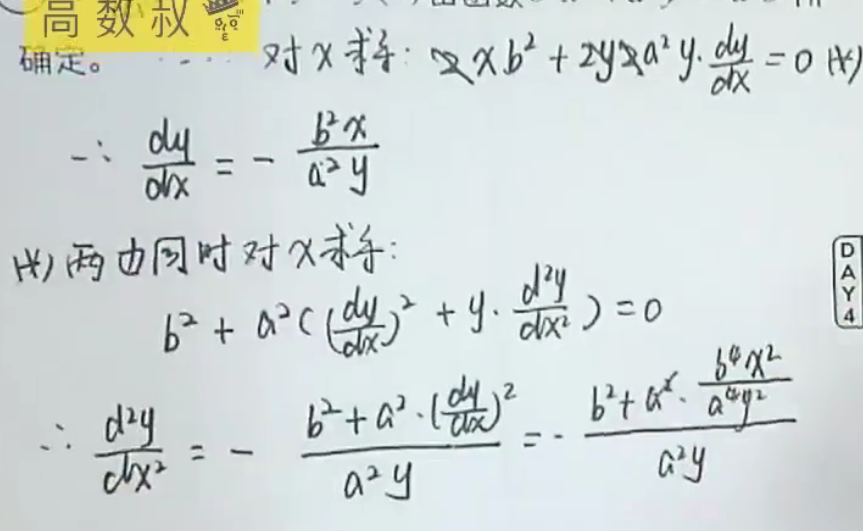 高数叔
确定。 对x求导: 2xb²+2y2a²y·dy/dx=0 (*)
∴ dy/dx = - b²x/a²y
(*)两边同时对x求导:
b²+a²((dy/dx)²+y·d²y/dx²)=0
DAY4
∴ d²y/dx² = - (b²+a²·(dy/dx)²)/(a²y) = - (b²+a²·b⁴x²/a⁴y²)/(a²y)